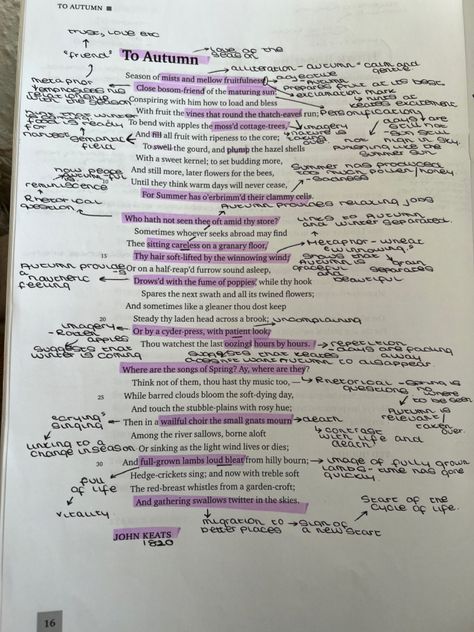 TO AUTUMN
trust, love etc
"friend"
To Autumn
Love of the season
alliteration - autumn calm and gentle
Season of mists and mellow fruitfulness!
adjective
metaphor
Close bosom-friend of the maturing sun;
prepares fruit at its best
exclamation mark
Conspiring with him how to load and bless
Keats excitement
With fruit the vines that round the thatch-eaves run;
Personification
To bend with apples the moss'd cottage-trees,
imagery
nature
is ready
for harvest
semantic field
And fill all fruit with ripeness to the core;
To swell the gourd, and plump the hazel shells
With a sweet kernel; to set budding more,
And still more, later flowers for the bees,
Summer has produced
too much pollen/honey.
Until they think warm days will never cease,
sadness
reminiscence
For Summer has o'erbrimm'd their clammy cells.
Rhetorical question
Autumn provides relaxing jobs
Who hath not seen thee oft amid thy store?
links to Autumn
and winter separated.
Sometimes whoever seeks abroad may find
Thee sitting careless on a granary floor,
Metaphor - wheat
"winnowing"
15
Thy hair soft-lifted by the winnowing wind;
shows that
Autumn is
graceful
and
beautiful
grain
separates
Autumn provides a
Or on a half-reap'd furrow sound asleep,
feeling
Drows'd with the fume of poppies, while thy hook
Spares the next swath and all its twined flowers;
And sometimes like a gleaner thou dost keep
20
Steady thy laden head across a brook;
uncomplaining
imagery
apples
Or by a cyder-press, with patient look,
Thou watchest the last oozings hours by hours.
repetition
days are fading
away
suggests that
winter is coming
suggests that Keats
doesn't want Autumn to disappear.
Where are the songs of Spring? Ay, where are they?
Think not of them, thou hast thy music too,—
Rhetorical questions
- Spring is
no where
to be seen
25
While barred clouds bloom the soft-dying day,
And touch the stubble-plains with rosy hue;
Autumn is
relevant/
taken
over.
"crying"
singing
Then in a wailful choir the small gnats mourn
death
Among the river sallows, borne aloft
contrast
with life and
death
linking to a
change in season
Or sinking as the light wind lives or dies;
30
And full-grown lambs loud bleat from hilly bourn;
image of fully grown
lambs - time has gone
quickly.
Hedge-crickets sing; and now with treble soft
full of life
The red-breast whistles from a garden-croft;
And gathering swallows twitter in the skies.
Start of the
Cycle of life.
vitality
migration to
better places
sign of
a new start
JOHN KEATS
1820
16